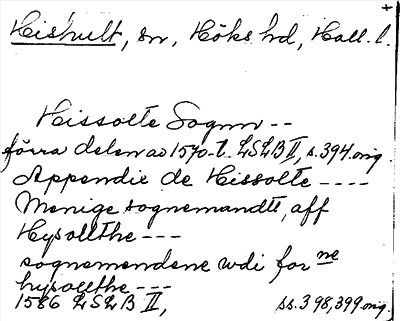 +
Hishult, sn, Höks hd, Hall. l.
Hissolte Sogn --
förra delen av 1570-t. LSLB II, s. 394 orig.
Appendie de Hissolte ----
Menige sognemandtz, aff
Hysollthe ---
sognemendene wdi for ne
hysollthe ---
1586 LSLB II, ss. 398, 399 orig.